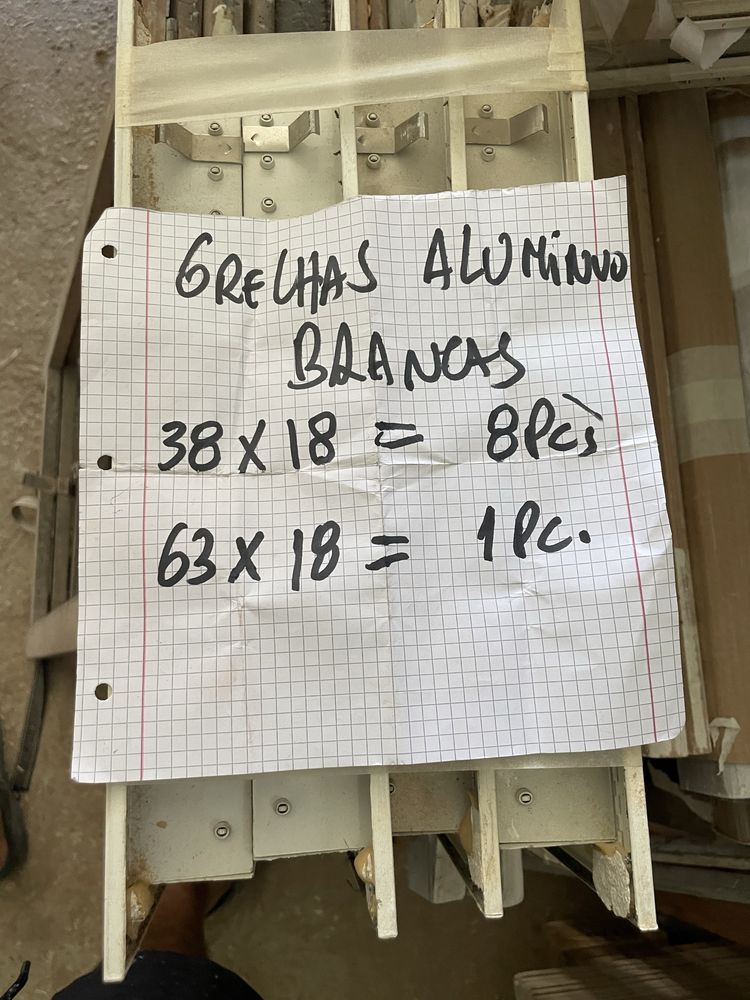 GRELHAS ALUMINIO
BRANCAS
38 X 18 = 8 Pcs
63 X 18 = 1 Pc.